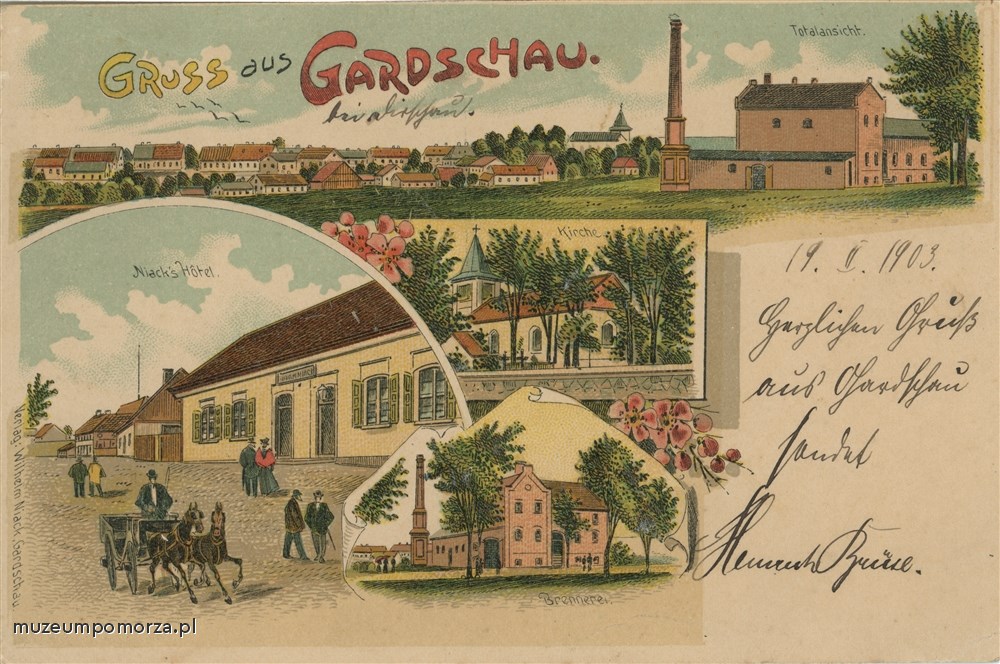 GRUSS aus GARDSCHAU.
bei Dirschau.
Totalansicht.
Niack's Hôtel.
Kirche.
Brennerei.
19. II. 1903.
Herzlichen Gruß
aus Gardschau
sendet
Heinrich
Verlag Wilhelm Niack, Gardschau
muzeumpomorza.pl